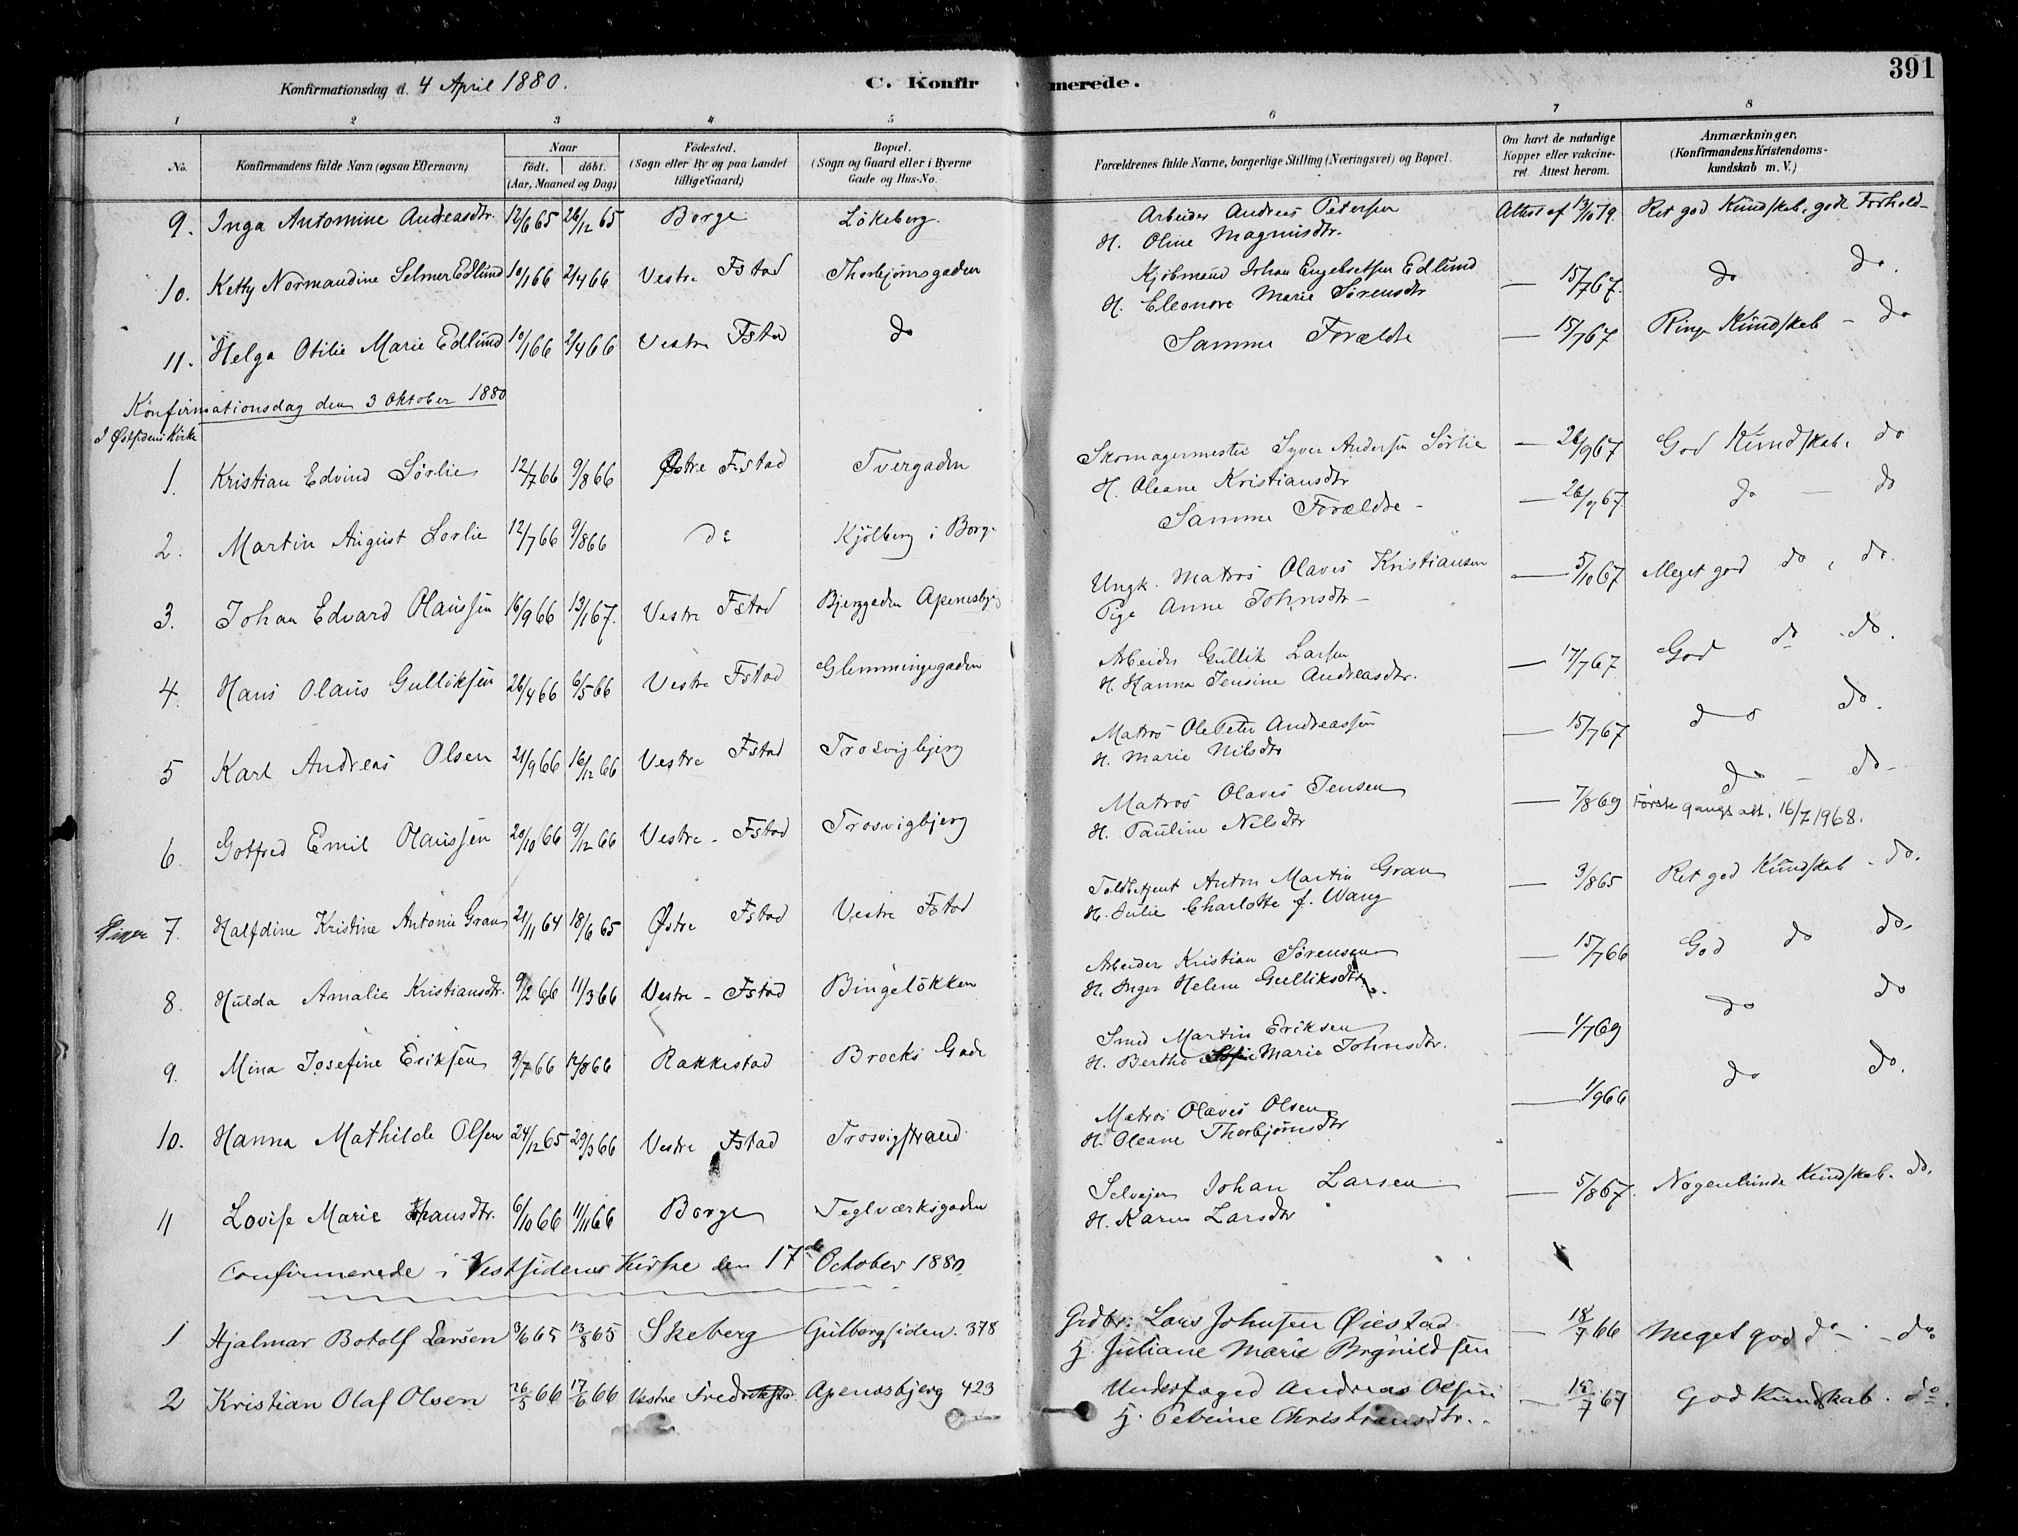 Konfirmationsdag d. 4 April 1880.
C. Konfirmerede.
391
1 2 3 4 5 6 7 8
No.
Konfirmandens fulde Navn (ogsaa Efternavn)
Naar
født. døbt.
(Aar, Maaned og Dag)
Fødested.
(Sogn eller By og paa Landet
tillige Gaard)
Bopæl.
(Sogn og Gaard eller i Byerne
Gade og Hus-No.
Forældrenes fulde Navne, borgerlige Stilling (Næringsvei) og Bopæl.
Om havt de naturlige
Kopper eller vakcine-
ret. Attest herom.
Anmærkninger,
(Konfirmandens Kristendoms-
kundskab m. V.)
9. Inga Antomine Andreasdtr. 12/6 65 26/12 65 Borge Lökeberg Arbeider Andreas Petersen Attest af 13/10 79. Ret god Kundskab, godt Forhold
H. Oline Magnusdtr.
10. Ketty Normandine Selmer Edlund 10/1 66 2/4 66 Vestre Fstad Thorbjørnsgaden Kjöbmand Johan Engebretsen Edlund — 15/7 67. do do.
H. Eleonore Marie Sørensdtr
11. Helga Otilie Marie Edlund 10/1 66 2/4 66 Vestre Fstad do Samme Forældre — 15/7 67 Ringe Kundskab – do
Konfirmationsdag den 3 Oktober 1880
I Østsidens Kirke
1. Kristian Edvind Sørlie 12/7 66 9/8 66 Østre Fstad Tvergaden Skomagermester Syver Andersen Sørlie — 26/9 67 God Kundskab. do
H. Oleane Kristiansdtr
2. Martin August Sorlie 12/7 66 9/8 66 do Kjölberg i Borge Samme Forældre — 26/9 67. do — do
3. Johan Edvard Olaussen 16/9 66 13/1 67. Vestre Fstad Bjerggaden Apenesbjerg Ungk. Matros Olaves Kristiansen — 5/10 67 Meget god do, do.
Pige Anne Johnsdtr
4. Hans Olaus Gulliksen 26/4 66 6/5 66 Vestre Fstad Glemmingegaden Arbeider Gullik Larsen — 17/7 67 God do do.
H. Hanna Jensine Andreasdtr.
5 Karl Andreas Olsen 21/9 66 16/12 66 Vestre Fstad Trosvigbjerg Matros Ole Peter Andreassen — 15/7 67 do do.
H. Marie Nilsdtr
6. Gotfred Emil Olaussen 20/10 66 9/12 66 Vestre - Fstad Trosvigbjerg Matros Olaves Jensen — 7/8 69 do – do
H. Pauline Nilsdtr Første gangs att. 16/7 1968.
Piger 7. Halfdine Kristine Antonie Gran 21/11 64 18/6 65 Østre Fstad Vestre Fstad Toldbetjent Anton Martin Gran — 3/8 65 Ret god Kundskab - do.
H. Julie Charlotte f. Wang
8. Hulda Amalie Kristiansdtr. 9/2 66 11/3 66 Vestre - Fstad Bingelökken Arbeider Kristian Sørensen — 15/7 66 God do do.
H. Inger Helene Gulliksdtr.
9. Mina Josefine Eriksen 9/7 66 12/8 66 Rakkestad Brocks Gade Smed Martin Eriksen — 1/7 69 do do
H. Berthe Marie Johnsdtr.
10. Hanna Mathilde Olsen 24/12 65 29/3 66 Vestre Fstad Trosvigstrand Matros Olaves Olsen — 1/9 66 do do.
H. Oleane Thorbjørnsdtr
11 Lovise Marie Johansdtr. 6/10 66 11/11 66 Borge Teglværksgaden Selveier Johan Larsen — 5/8 67. Nogenlunde Kundskab. do.
H. Karen Larsdtr
Confirmerede i Vestsidens Kirke den 17de October 1880.
1 Hjalmar Botolf Larsen 3/6 65 13/8 65 Skeberg Gulbergsiden. 378 Grdbr. Lars Johnsen Øiestad — 18/7 66 Meget god do – do
H. Juliane Marie Brynildsen
2 Kristian Olaf Olsen 26/5 66 17/6 66 Vestre Fredrikstad Apenæsbjerg 423 Underfoged Andreas Olsen — 15/7 67 God Kundskab. do.
H. Petrine Christiansdtr.